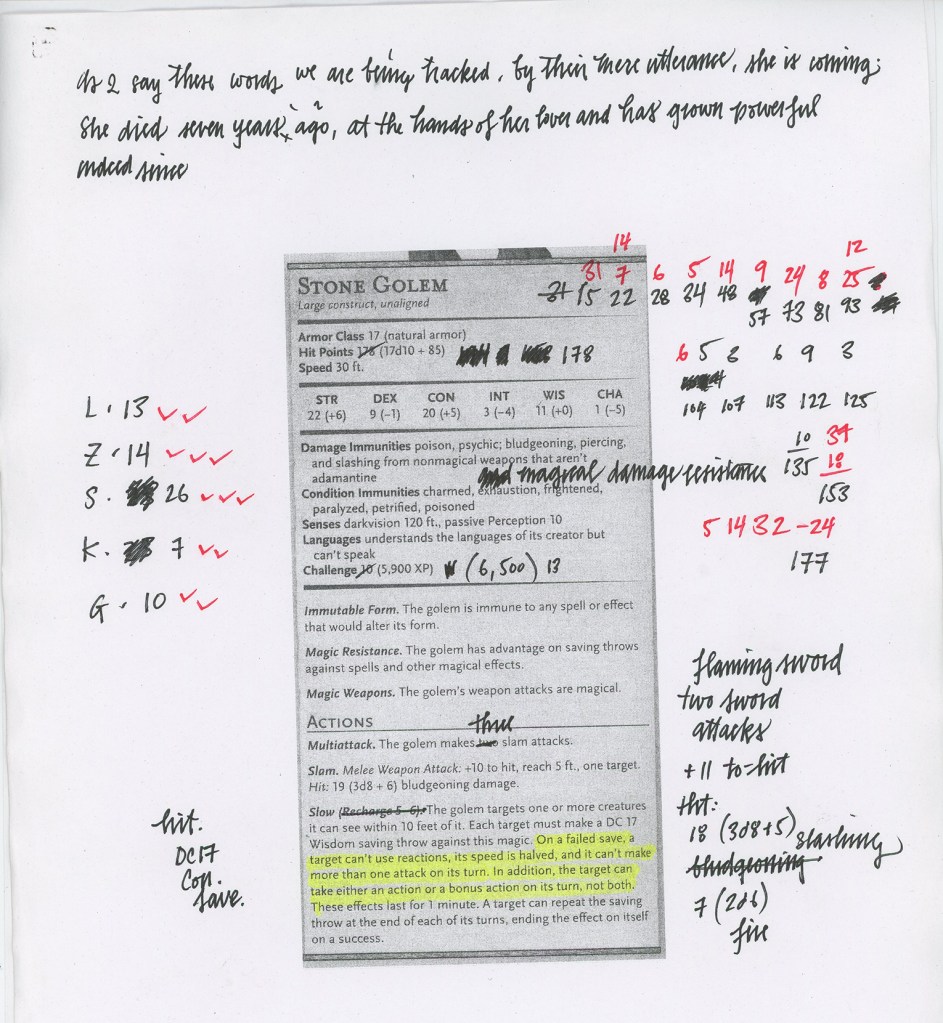 As I say these words, we are being tracked, by their mere utterance, she is coming;
She died seven years ago, at the hands of her lover and has grown powerful
indeed since
14
31 7 6 5 14 9 24 8 25 12
31 15 22 28 34 48 57 73 81 93
STONE GOLEM
Large construct, unaligned
Armor Class 17 (natural armor)
Hit Points 178 (17d10 + 85) 178
Speed 30 ft.
6 5 3 6 9 3
104 107 113 122 125
STR DEX CON INT WIS CHA
22 (+6) 9 (−1) 20 (+5) 3 (−4) 11 (+0) 1 (−5)
L. 13
Z. 14
S. 26
K. 7
G. 10
Damage Immunities poison, psychic; bludgeoning, piercing,
and slashing from nonmagical weapons that aren't
adamantine and magical damage resistance
10 34
135 18
153
5 14 3 2 -24
177
Condition Immunities charmed, exhaustion, frightened,
paralyzed, petrified, poisoned
Senses darkvision 120 ft., passive Perception 10
Languages understands the languages of its creator but
can't speak
Challenge 10 (5,900 XP) (6,500) 13
Immutable Form. The golem is immune to any spell or effect
that would alter its form.
Magic Resistance. The golem has advantage on saving throws
against spells and other magical effects.
Magic Weapons. The golem's weapon attacks are magical.
ACTIONS
three
Multiattack. The golem makes two slam attacks.
Slam. Melee Weapon Attack: +10 to hit, reach 5 ft., one target.
Hit: 19 (3d8 + 6) bludgeoning damage.
Slow (Recharge 5–6). The golem targets one or more creatures
it can see within 10 feet of it. Each target must make a DC 17
Wisdom saving throw against this magic. On a failed save, a
target can't use reactions, its speed is halved, and it can't make
more than one attack on its turn. In addition, the target can
take either an action or a bonus action on its turn, not both.
These effects last for 1 minute. A target can repeat the saving
throw at the end of each of its turns, ending the effect on itself
on a success.
hit.
DC17
Con.
save.
flaming sword
two sword
attacks
+11 to-hit
Hit:
18 (3d8+5) slashing
bludgeoning
7 (2d6)
fire